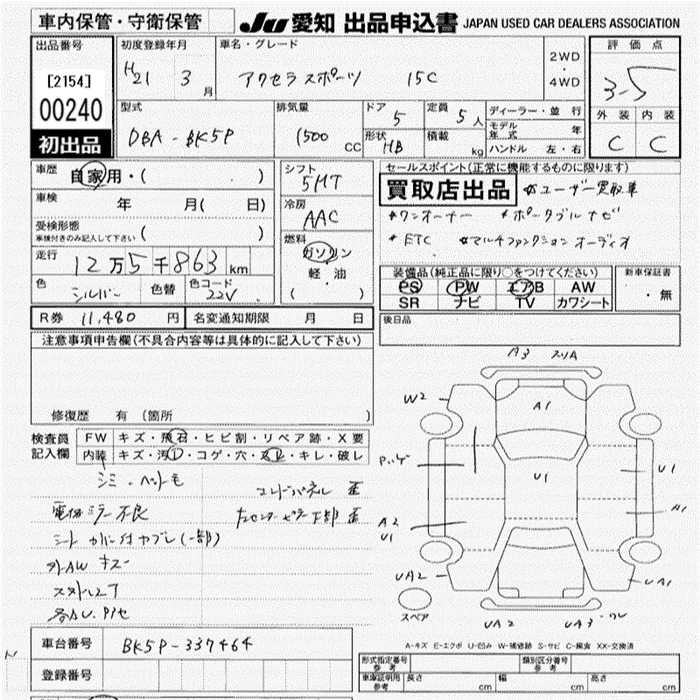 車内保管・守衛保管
JU 愛知 出品申込書 JAPAN USED CAR DEALERS ASSOCIATION
出品番号 初度登録年月 車名・グレード 2WD・4WD 評価点
[2154] H21 3月 アクセラスポーツ 15C 3-5
00240
初出品
型式 排気量 ドア 5 定員 5人 ディーラー・並行 外装 内装
DBA-BK5P 1500 CC 形状 HB 積載 kg モデル年式 年 C C
ハンドル 左・右
車歴 自家用・( )
車検 年 月( 日)
受検形態 ( )
車検付きのみ記入して下さい
走行 12万5千863km
色 シルバー 色替 色コード 22V
シフト 5MT
冷房 AAC
燃料 ガソリン
軽・油
( )
セールスポイント(正常に機能するものに限ります)
買取店出品 *ユーザー買取車
*ワンオーナー *ポータブルナビ
*ETC *マルチファンクションオーディオ
装備品(純正品に限り○をつけてください) 新車保証書
PS PW エアB AW ・無
SR ナビ TV カワシート
R券 11,480円 名変通知期限 月 日 後日品
注意事項申告欄(不具合内容等は具体的に記入して下さい)
修復歴 有 (箇所 )
検査員記入欄 FW キズ・飛石・ヒビ割・リペア跡・X要
内装 キズ・汚レ・コゲ・穴・スレ・キレ・破レ
シミ・ヘットモ
電格ミラー不良
コアパネル 歪
左センターピラー下部 歪
シートカバー付ヤブレ(一部)
外AWキズ
スタルエア
各AU.PTセ
A3 スリA
W2
A1
U1
U1
A1
A2
U1
UA2
UA1
スペア
UA2 UA3
A-キズ E-エクボ U-凹み W-補修跡 S-サビ C-腐食 XX-交換済
車台番号 BK5P-337464
登録番号
形式指定番号 参考 類別区分番号 参考
車庫証明用 参考 長さ cm 幅 cm 高さ cm